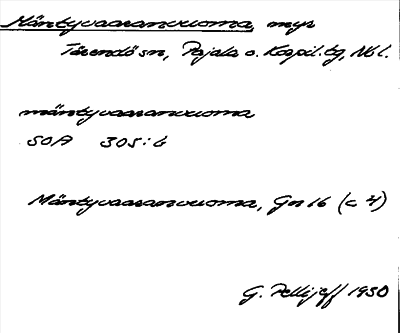 Mäntyvaaranvuoma, myr
Tärendö sn, Pajala o. Korpil. tg, Nbl.
mäntyvaaranvuoma
SOA 305:6
Mäntyvaaranvuoma, Gn 16 (c 4)
G. Pellijeff 1950